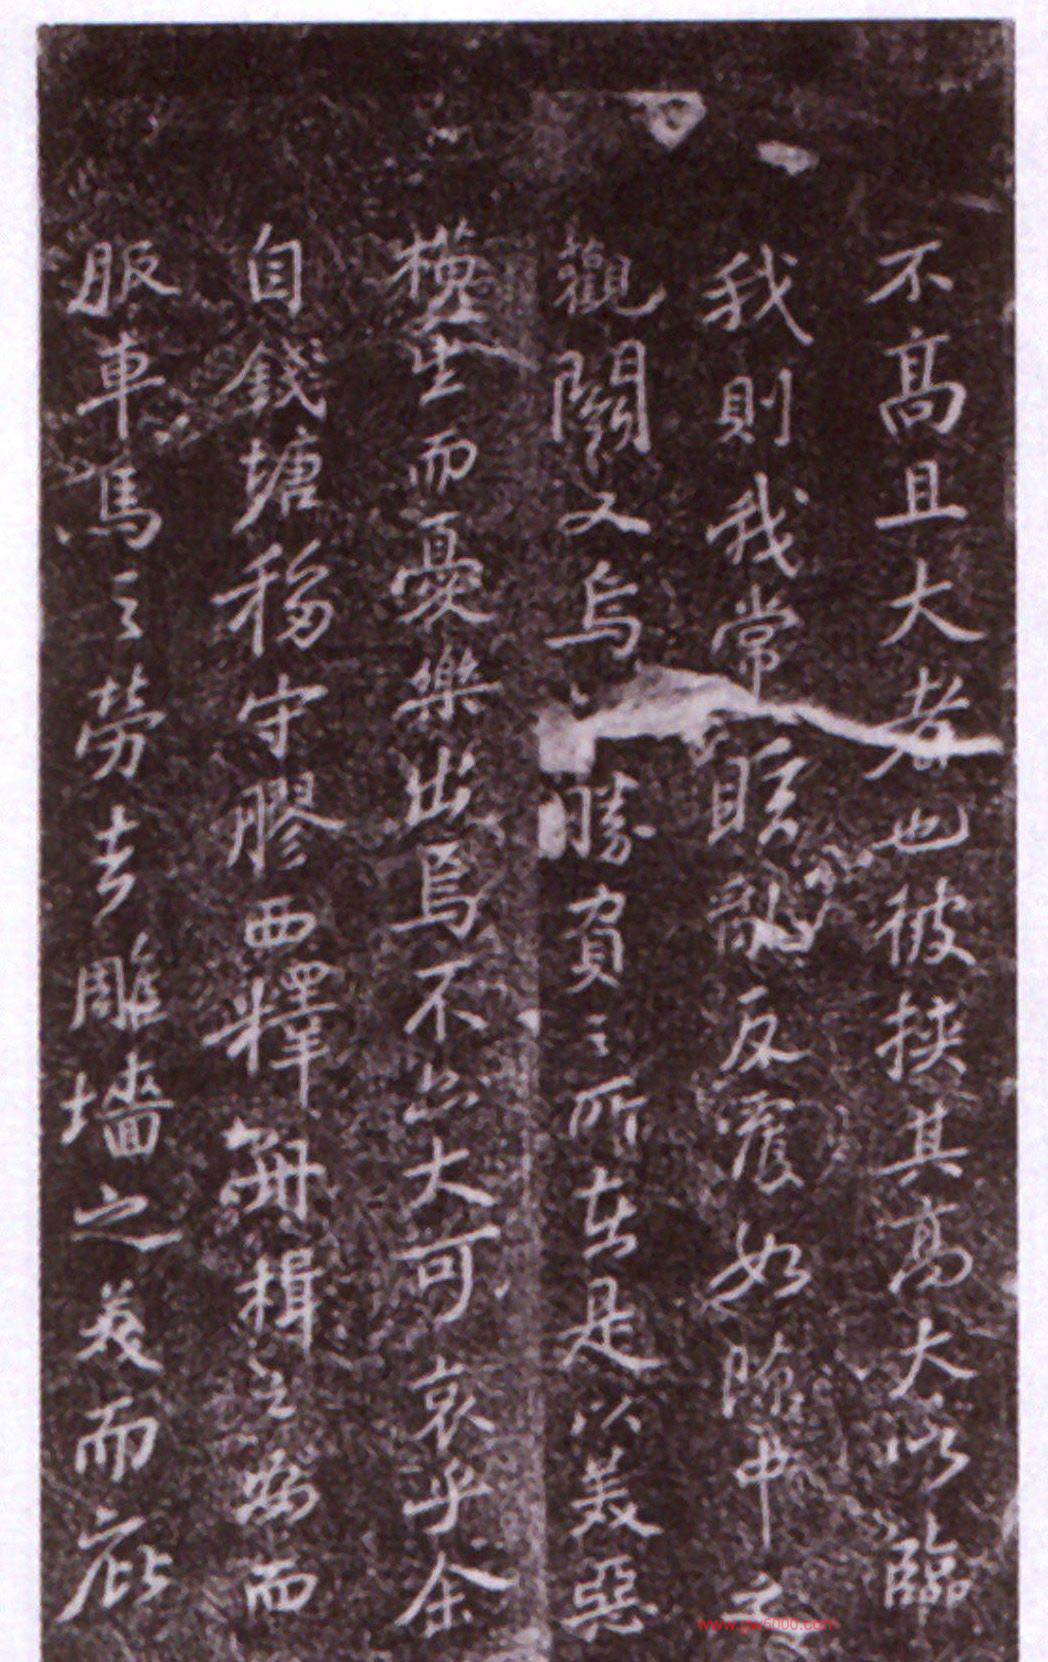 不高且大者也彼挾其高大以臨
我則我常眩亂反覆如隙中之
觀鬭又烏勝負之所在是以美惡
橫生而憂樂出焉不亦大可哀乎余
自錢塘移守膠西釋舟楫之安而
服車馬之勞去雕墻之美而庇